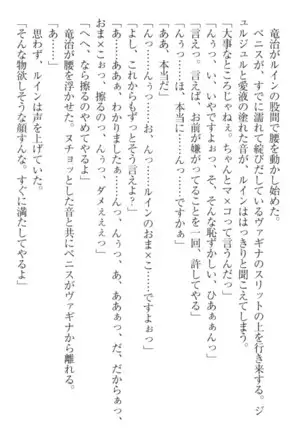 竜治がルインの股間で腰を動かし始めた。
ペニスが、すでに濡れて綻びだしているヴァギナのスリットの上を行き来する。ジ
ュルジュルと愛液の塗れた音が、ルインにははっきりと聞こえてしまう。
「大事なところじゃねぇ。ちゃんとマ×コって言うんだっ」
「んぅっ、い、いやですよぉっ、そ、そんな恥ずかしい、ひあぁぁんっ」
「言えっ。言えば、お前が嫌がってることを一回、許してやるよ」
「んぅっ……ほ、本当に……んっ……ですかぁ」
「ああ、本当だ」
「んっ……んっ……お、んっ……ルインのおま×こ……ですぅっ」
「よし、これからもずっとそう言えよ？」
「あ……ああぁっ、わかりましたぁ……んっ、んぅっ、あ、ああぁっ、だ、だからぁっ、
おま×こ、擦るのっ、んぅっ、ダメぇぇぇっ」
「へへ、なら擦るのやめてやるよ」
竜治が腰を浮かせた。ヌチョッとした音と共にペニスがヴァギナから離れる。
「あ……」
思わず、ルインは声を上げていた。
「そんな物欲しそうな顔すんな。すぐに満たしてやるよ」